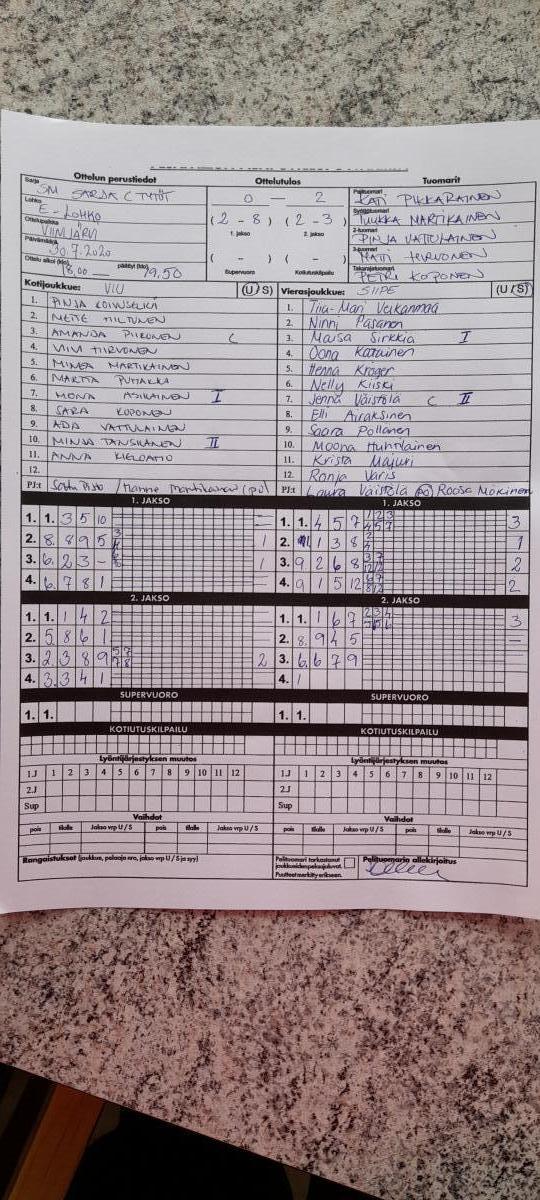 Ottelun perustiedot Ottelutulos Tuomarit
Sarja SM SARJA C TYTÖT 0 — 2 Pelituomari KATI PIKKARAINEN
Lohko E-LOHKO (2 - 8) (2 - 3) Syöttötuomari TUUKKA MARTIKAINEN
Ottelupaikka VIINIJÄRVI 1. jakso 2. jakso 2-tuomari PINJA VATTULAINEN
Päivämäärä 30.7.2020 ( - ) ( - ) 3-tuomari MATI HIRVONEN
Ottelu alkoi (klo) 18.00 — päättyi (klo) 19.50 Supervuoro Kotiutuskilpailu Takarajatuomari PETRI KOPONEN
Kotijoukkue: VIU (U/S) Vierasjoukkue: SIIPE (U/S)
1. PINJA KOIVUSELKÄ 1. Tiia-Mari Veikanmaa
2. NEITE MILTUNEN 2. Ninni Pasanen
3. AMANDA PIIRONEN C 3. Maisa Sirkkiä I
4. VIIVI HIRVONEN 4. Oona Karttunen
5. MINEA MARTIKAINEN 5. Henna Kröger
6. MARTTA PUHAKKA 6. Nelly Kiiski
7. MONA ASIKAINEN I 7. Jenna Väistölä C II
8. SARA KOPONEN 8. Elli Airaksinen
9. ADA VATTULAINEN 9. Saara Pollanen
10. MINJA TANSKANEN II 10. Moona Huhtilainen
11. ANNA KIELOAHO 11. Krista Majuri
12. 12. Ronja Varis
PJ:t Satu Pisto / Hanne Martikainen (pj) PJ:t Laura Väistölä Roosa Moikinen
1. JAKSO 1. JAKSO
1. 1. 3 5 10 — 1. 1. 4 5 7 3
2. 8. 8 9 5 1 2. 1 3 8 1
3. 6. 2 3 - 1 3. 9 2 6 8 2
4. 6. 7 8 1 4. 9 1 5 12 2
2. JAKSO 2. JAKSO
1. 1. 1 4 2 1. 1. 1 6 7 3
2. 5. 8 6 1 2. 8. 9 4 5 —
3. 2. 3 8 9 2 3. 6. 6 7 9
4. 3. 3 4 1 4. 1
SUPERVUORO SUPERVUORO
1. 1. 1. 1.
KOTIUTUSKILPAILU KOTIUTUSKILPAILU
Lyöntijärjestyksen muutos Lyöntijärjestyksen muutos
1.J 1 2 3 4 5 6 7 8 9 10 11 12 1.J 1 2 3 4 5 6 7 8 9 10 11 12
2.J 2.J
Sup Sup
Vaihdot Vaihdot
pois tilalle Jakso vrp U / S pois tilalle Jakso vrp U / S pois tilalle Jakso vrp U / S pois tilalle Jakso vrp U / S
Rangaistukset (joukkue, pelaaja nro, jakso vrp U / S ja syy) Pelituomari tarkastanut joukkueiden pelaajaluvat. Pelituomarin allekirjoitus
Puutteet merkitty erikseen.